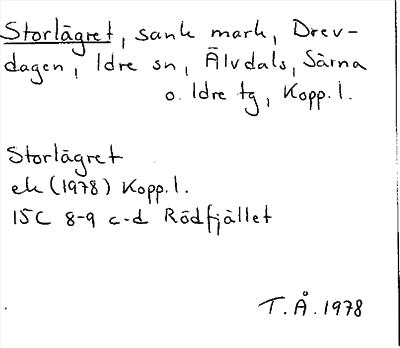 Storlägret, sank mark, Drev-
dagen, Idre sn, Älvdals, Särna
o. Idre tg, Kopp. l.
Storlägret
ek (1978) Kopp. l.
15C 8-9 c-d Rödfjället
T. Å. 1978